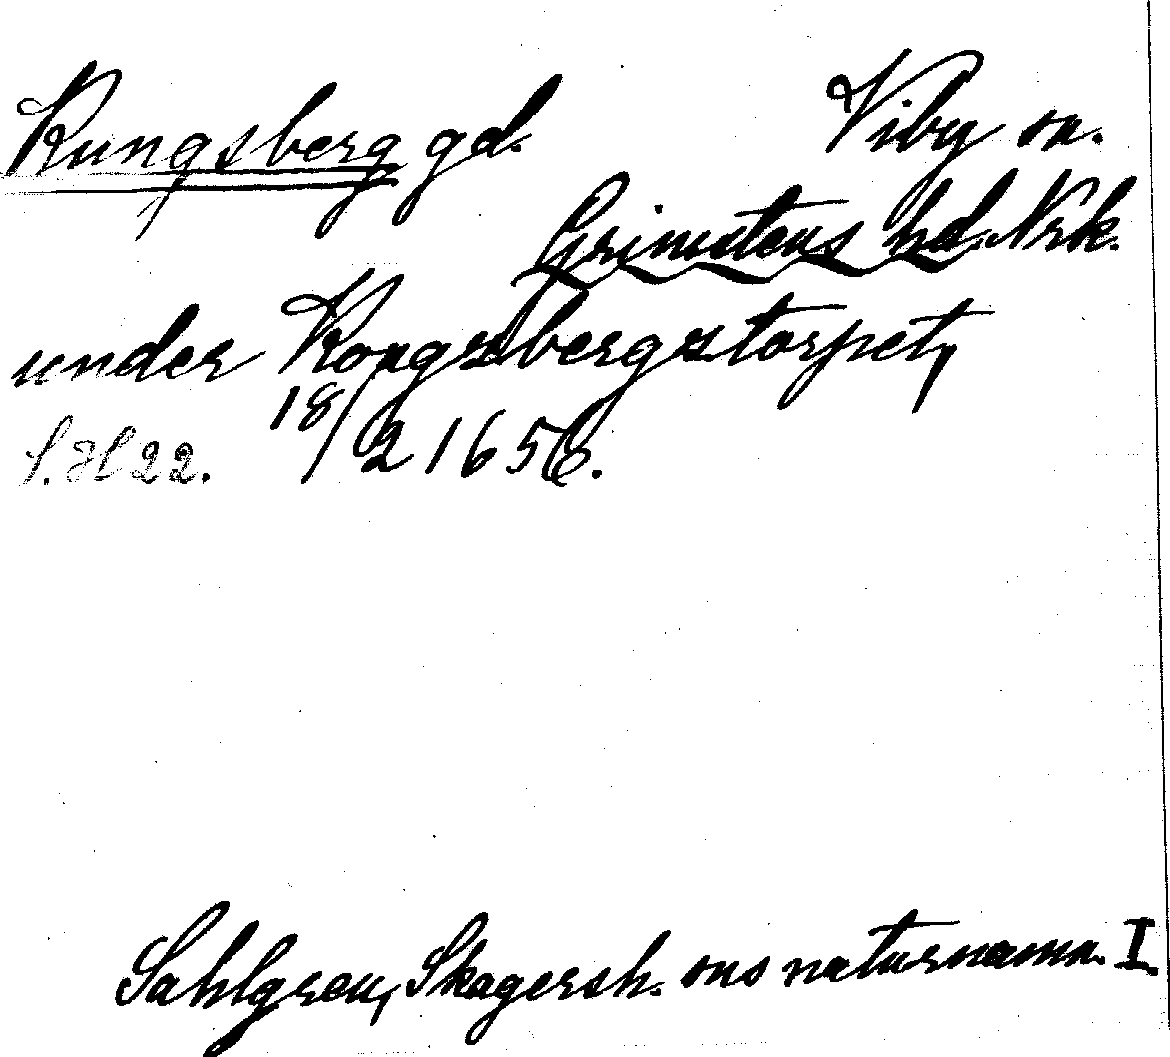 Kungsberg gd. Viby sn.
Grimstens hd. Nrk.
under Kongzbergztorpet,
18/2 1656.
S. H 22.
Sahlgren, Skagersh. sns naturnamn. I.